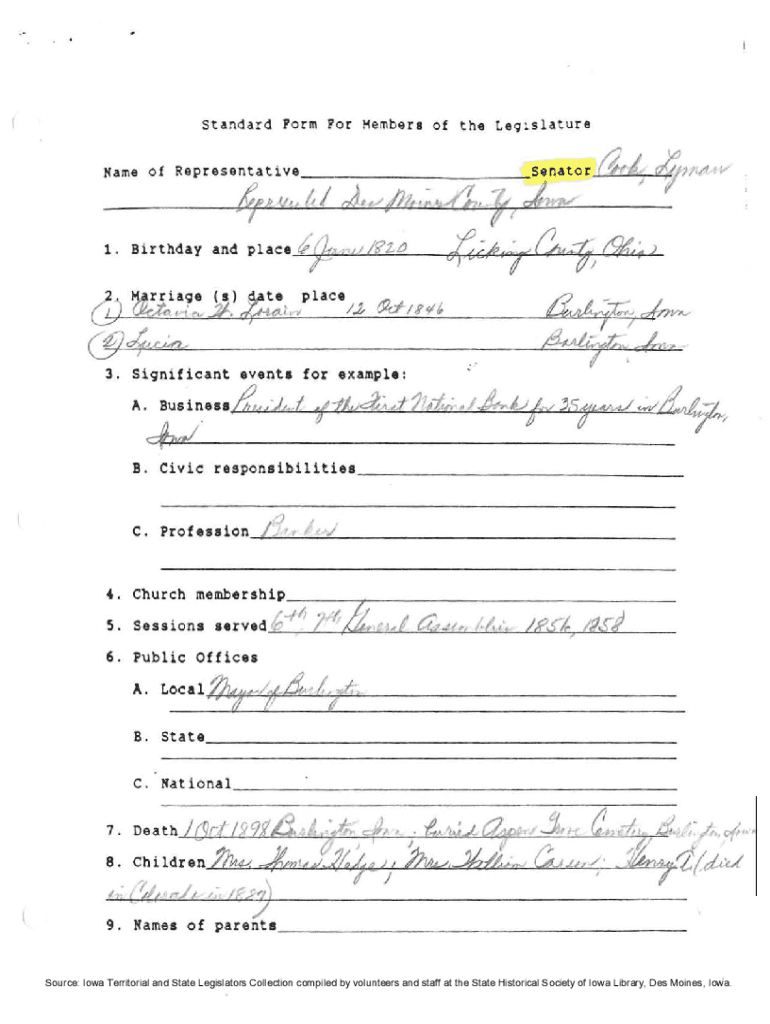 Standard Form For Members of the Legislature
Name of Representative Senator Cook, Lyman
Represented Des Moines County, Iowa
1. Birthday and place 6 June 1820 Licking County, Ohio
2. Marriage (s) date place
(1) Octavia H. Lorain 12 Oct 1846 Burlington, Iowa
(2) Lucia Burlington Iowa
3. Significant events for example:
A. Business President of the First National Bank for 35 years in Burlington,
Iowa
B. Civic responsibilities
C. Profession Banker
4. Church membership
5. Sessions served 6th, 7th General Assemblies 1856, 1858
6. Public Offices
A. Local Mayor of Burlington
B. State
C. National
7. Death 1 Oct 1898 Burlington, Iowa. buried Aspen Grove Cemetery, Burlington, Iowa
8. Children Mrs. Thomas Hedge; Mrs William Carson; Henry A. (died
in Colorado in 1889)
9. Names of parents
Source: Iowa Territorial and State Legislators Collection compiled by volunteers and staff at the State Historical Society of Iowa Library, Des Moines, Iowa.